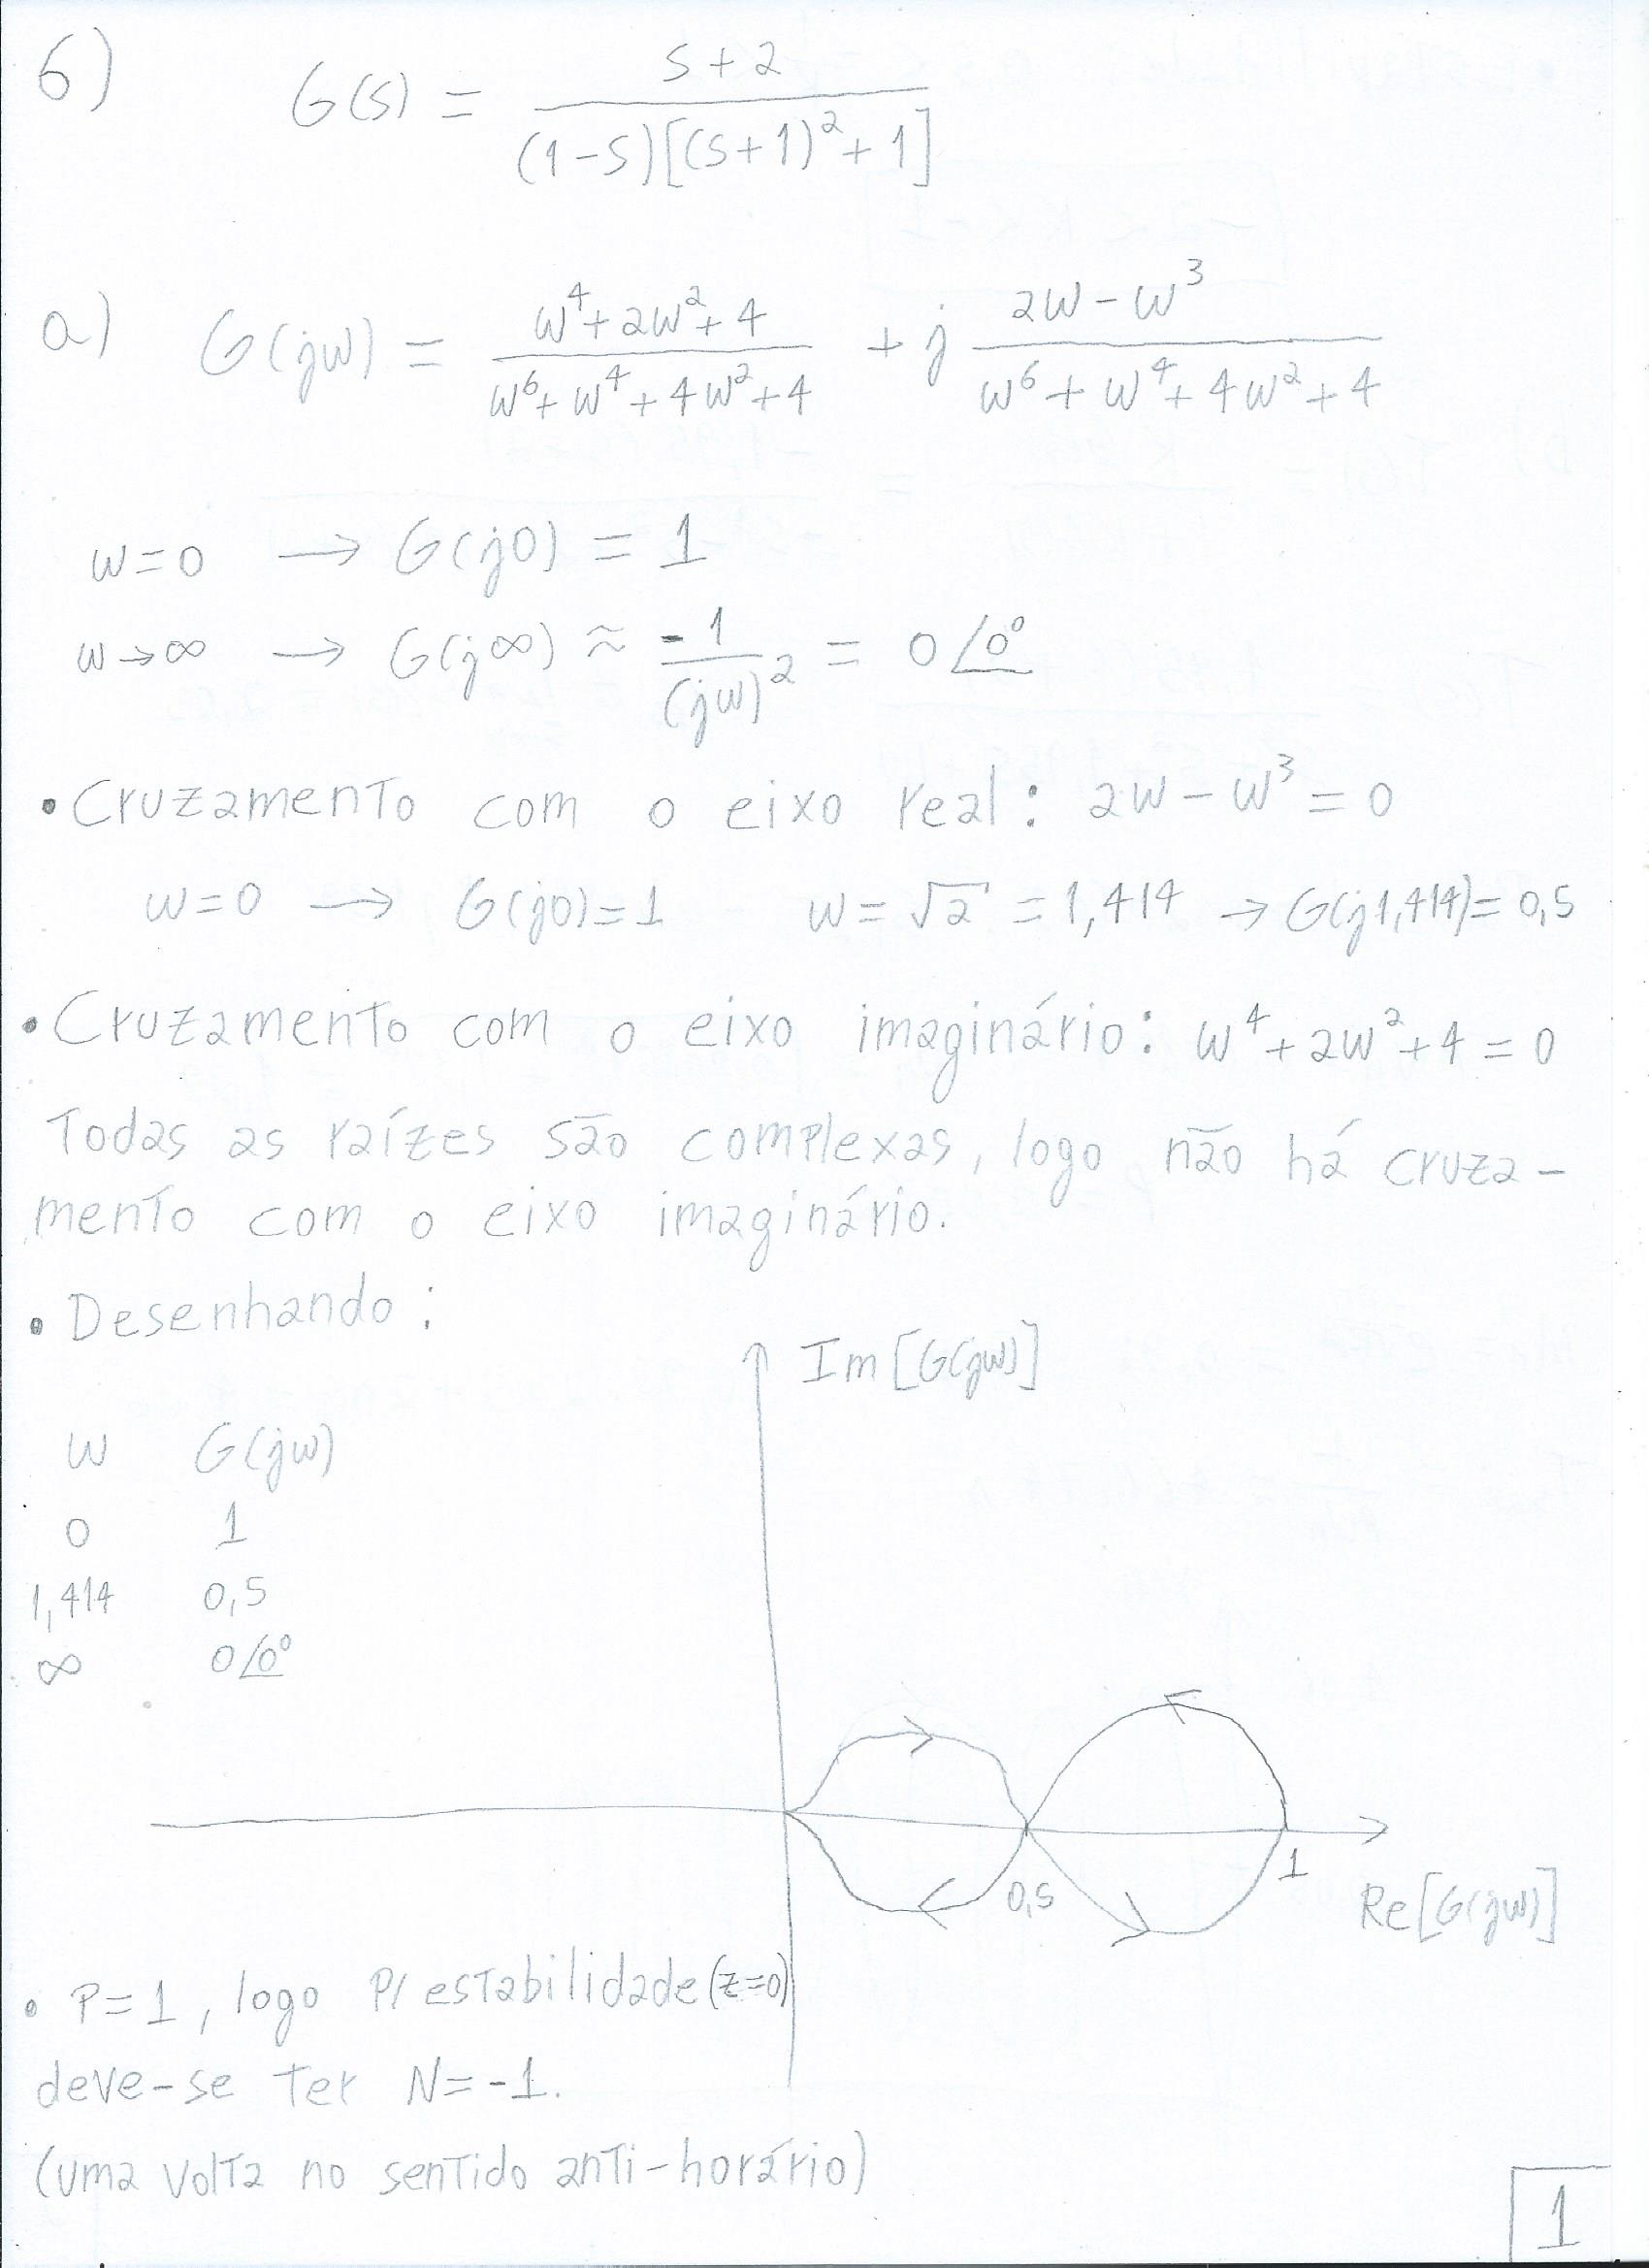 6) G(s) = (s+2) / ((1-s)[(s+1)²+1])
a) G(jw) = (w⁴+2w²+4) / (w⁶+w⁴+4w²+4) + j (2w-w³) / (w⁶+w⁴+4w²+4)
w=0 → G(j0) = 1
w→∞ → G(j∞) ≈ -1/(jw)² = 0∠0°
• Cruzamento com o eixo real: 2w-w³=0
w=0 → G(j0)=1 w=√2=1,414 → G(j1,414)=0,5
• Cruzamento com o eixo imaginário: w⁴+2w²+4=0
Todas as raízes são complexas, logo não há cruza-
mento com o eixo imaginário.
• Desenhando:
Im[G(jw)]
w G(jw)
0 1
1,414 0,5
∞ 0∠0°
1
0,5
Re[G(jw)]
• P=1, logo p/ estabilidade (z=0)
deve-se ter N=-1.
(uma volta no sentido anti-horário)
1